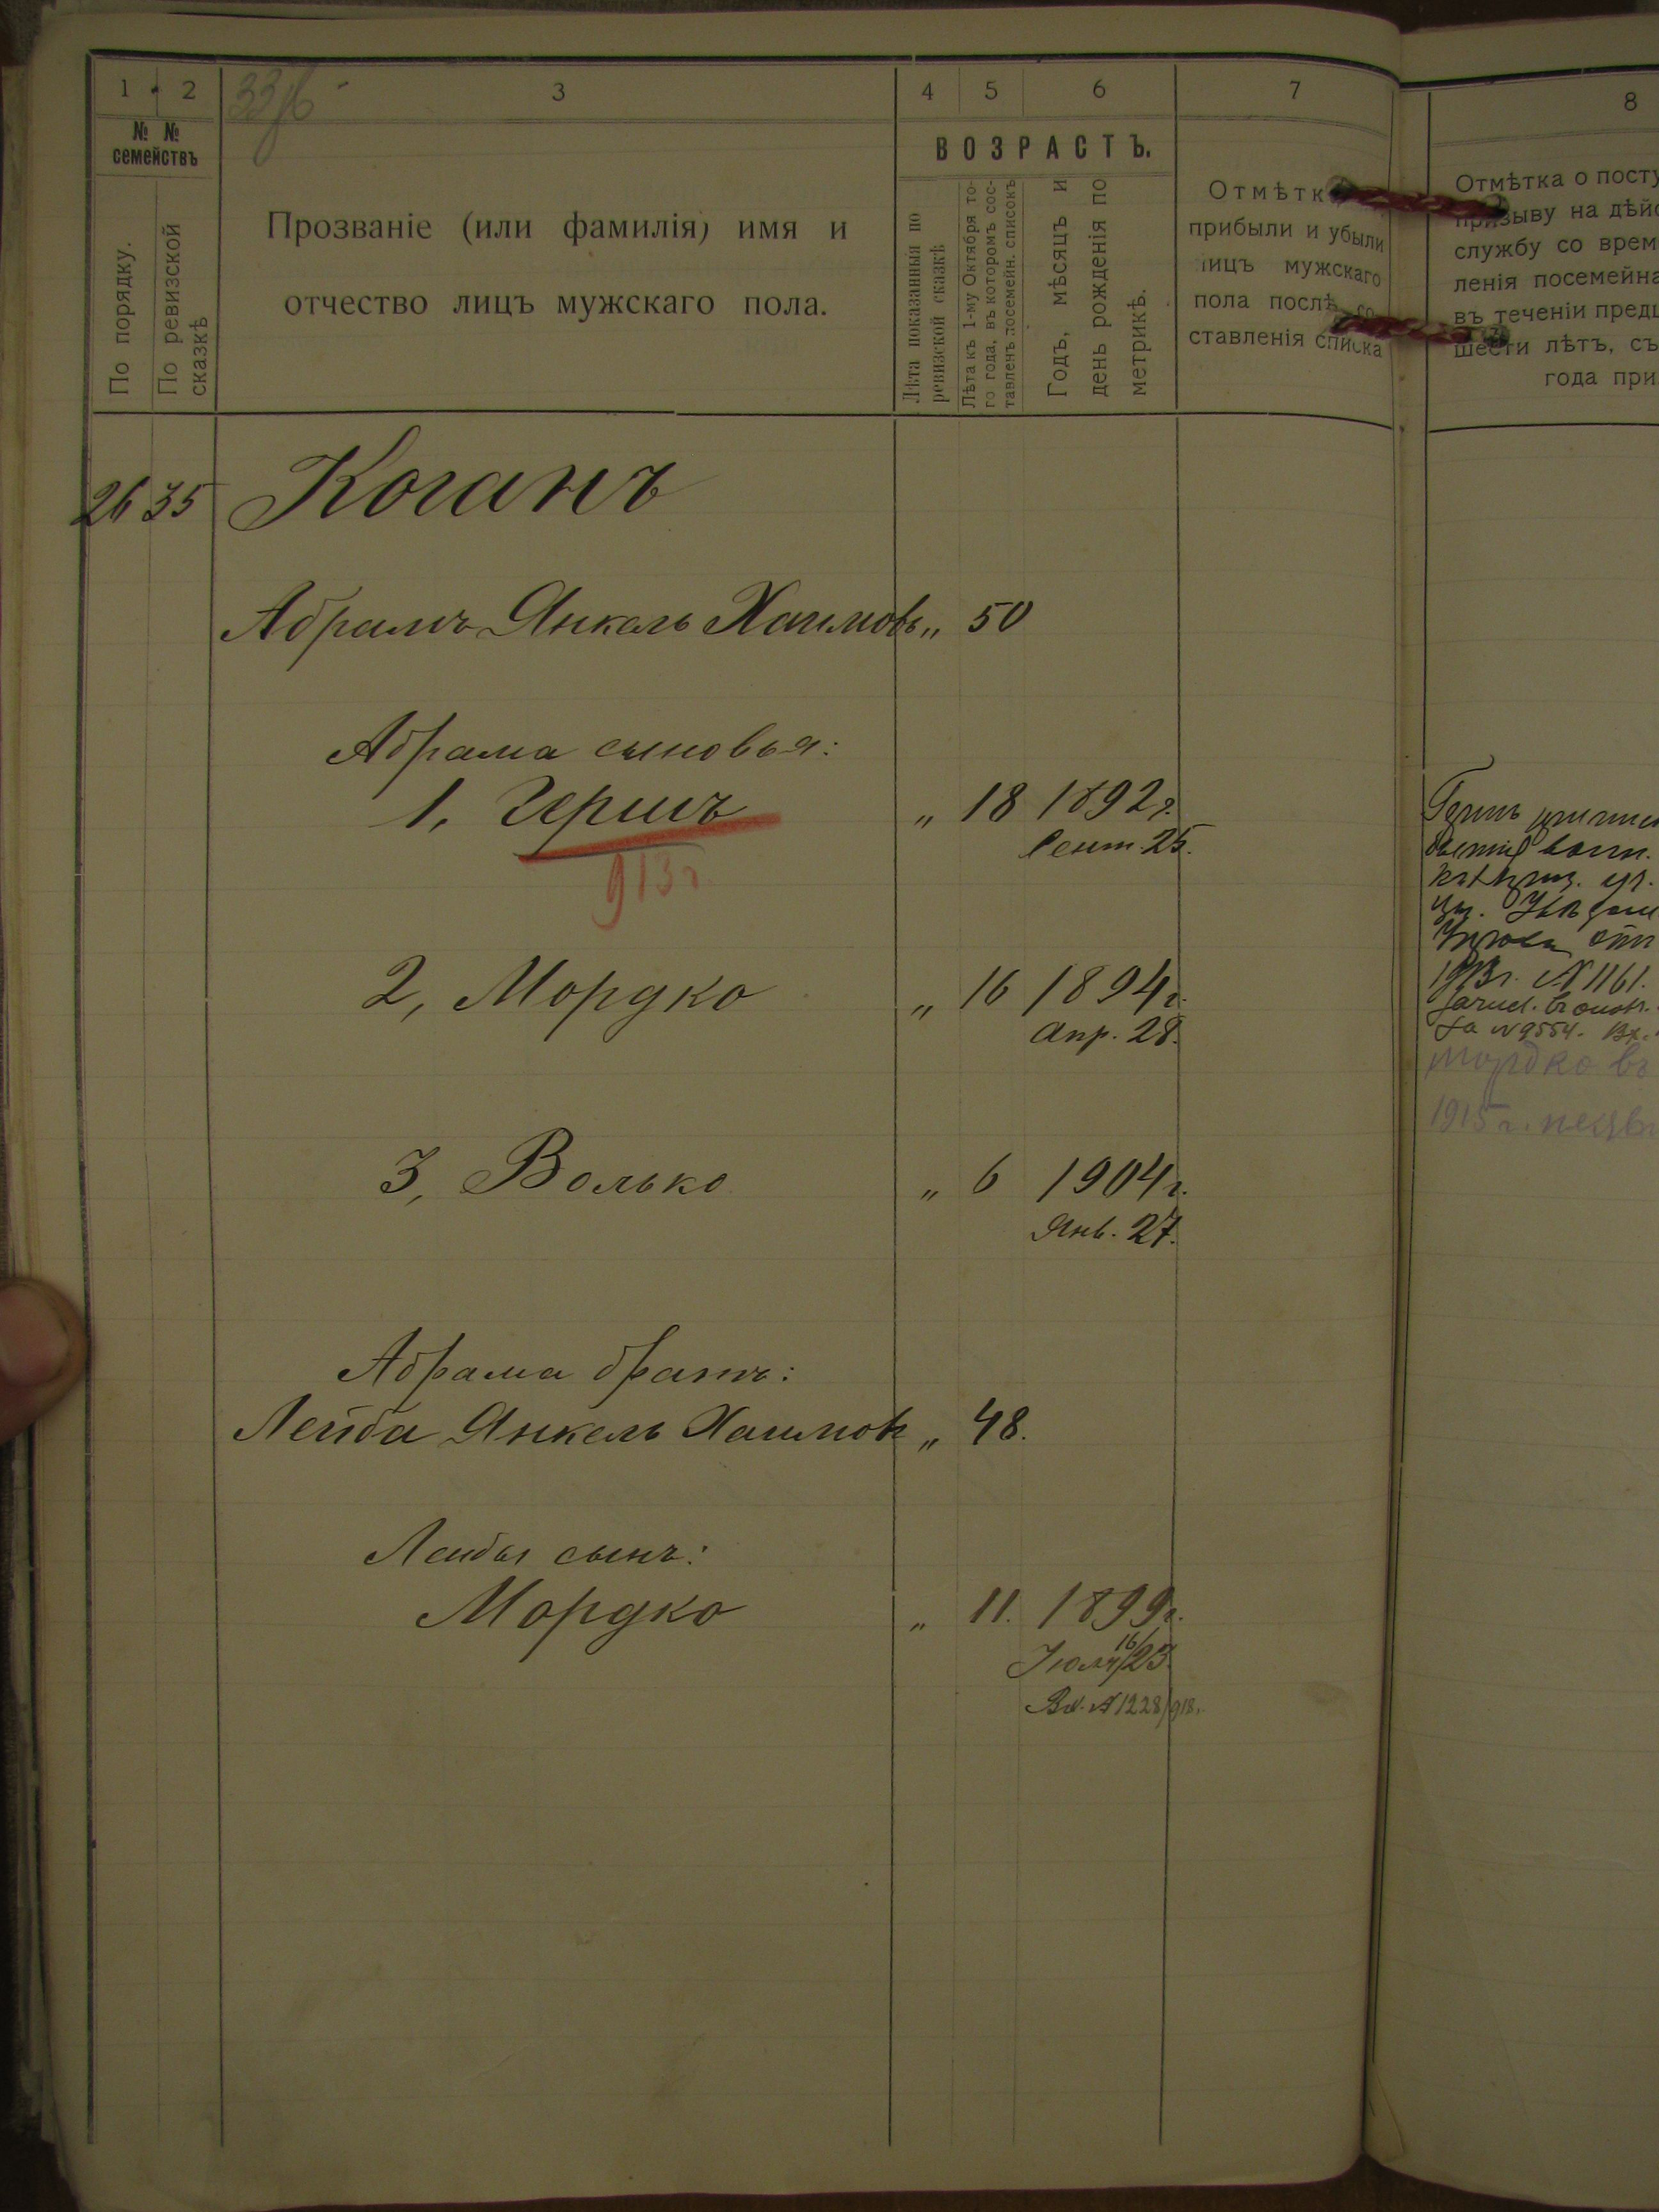 1 2 3 4 5 6 7
№ № семействъ
По порядку.
По ревизской сказкѣ
Прозваніе (или фамилія) имя и
отчество лицъ мужскаго пола.
ВОЗРАСТЪ.
Лѣта показанныя по
ревизской сказкѣ
Лѣта къ 1-му Октября то-
го года, въ которомъ сос-
тавленъ посемейн. списокъ
Годъ, мѣсяцъ и
день рожденія по
метрикѣ.
Отмѣтк
прибыли и убыли
лицъ мужскаго
пола послѣ со
ставленія списка
2635 Коганъ
Абрамъ Янкель Хаимовъ „ 50
Абрама сыновья:
1, Гершъ „ 18 1892 г.
Сент. 25.
913 г
2, Мордко „ 16 1894 г.
Апр. 28.
3, Волько „ 6 1904 г.
Янв. 27.
Абрама братъ:
Лейба Янкель Хаимовъ „ 48.
Лейбы сынъ:
Мордко „ 11. 1899 г.
Іюля 16/23.
Вх. № 1228/918.
8
Отмѣтка о посту
призыву на дѣйс
службу со врем
ленія посемейна
въ теченіи предш
шести лѣтъ, съ
года при
Гершъ
1913 г. № 1161.
За № 9554. Вх.
Мордко въ
1915 г. неявк